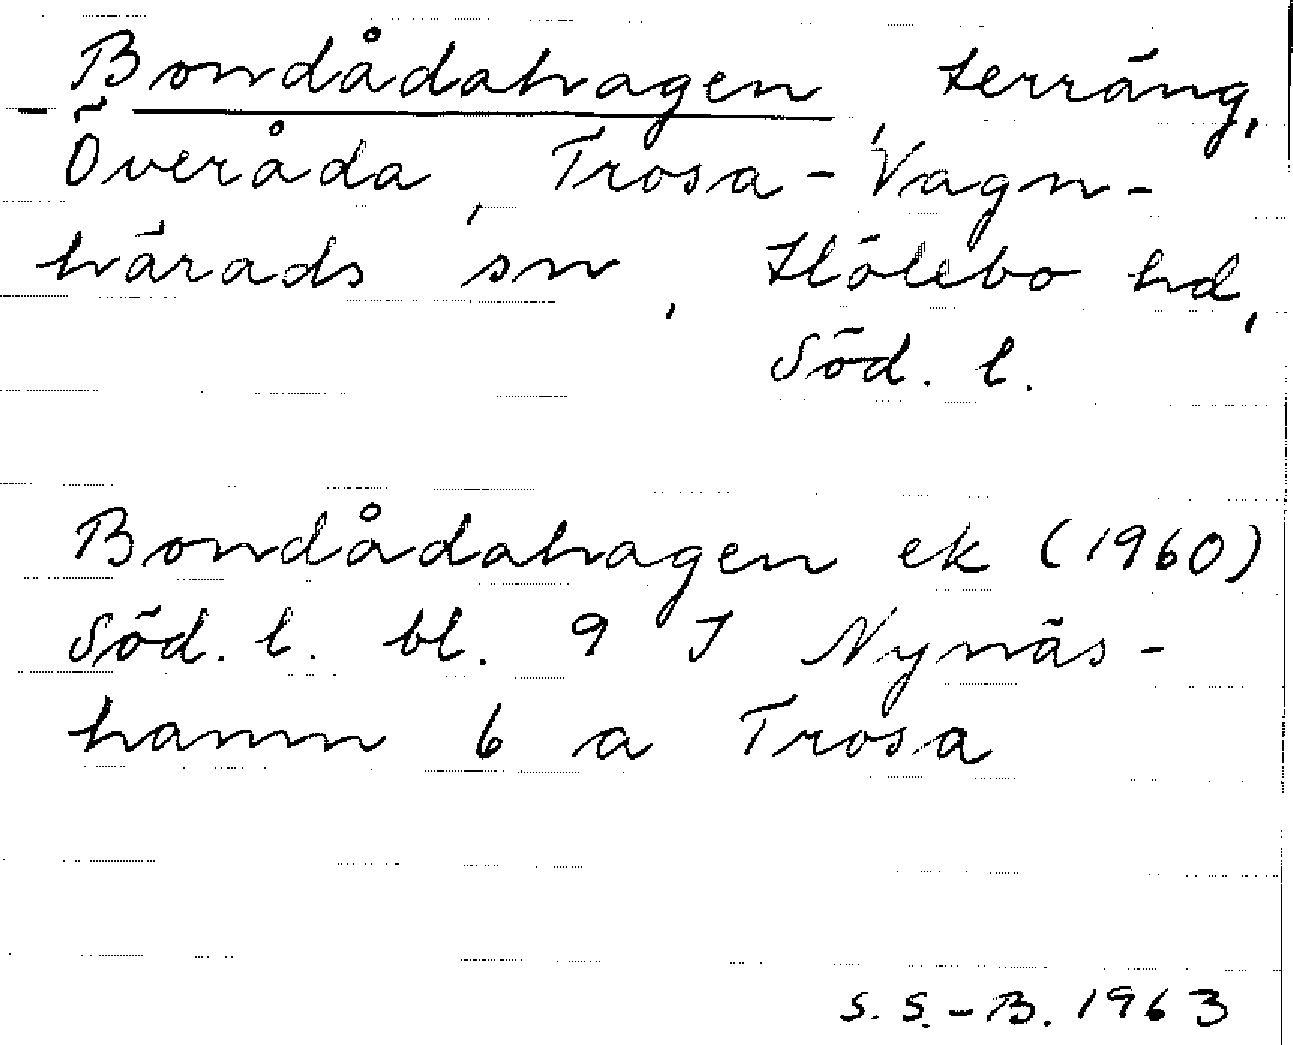 Bondådahagen, terräng,
Överåda, Trosa-Vagn-
härads sn, Hölebo hd,
Söd. l.
Bondådahagen ek (1960)
Söd. l. bl. 9 I Nynäs-
hamn 6 a Trosa
S. S.-B. 1963